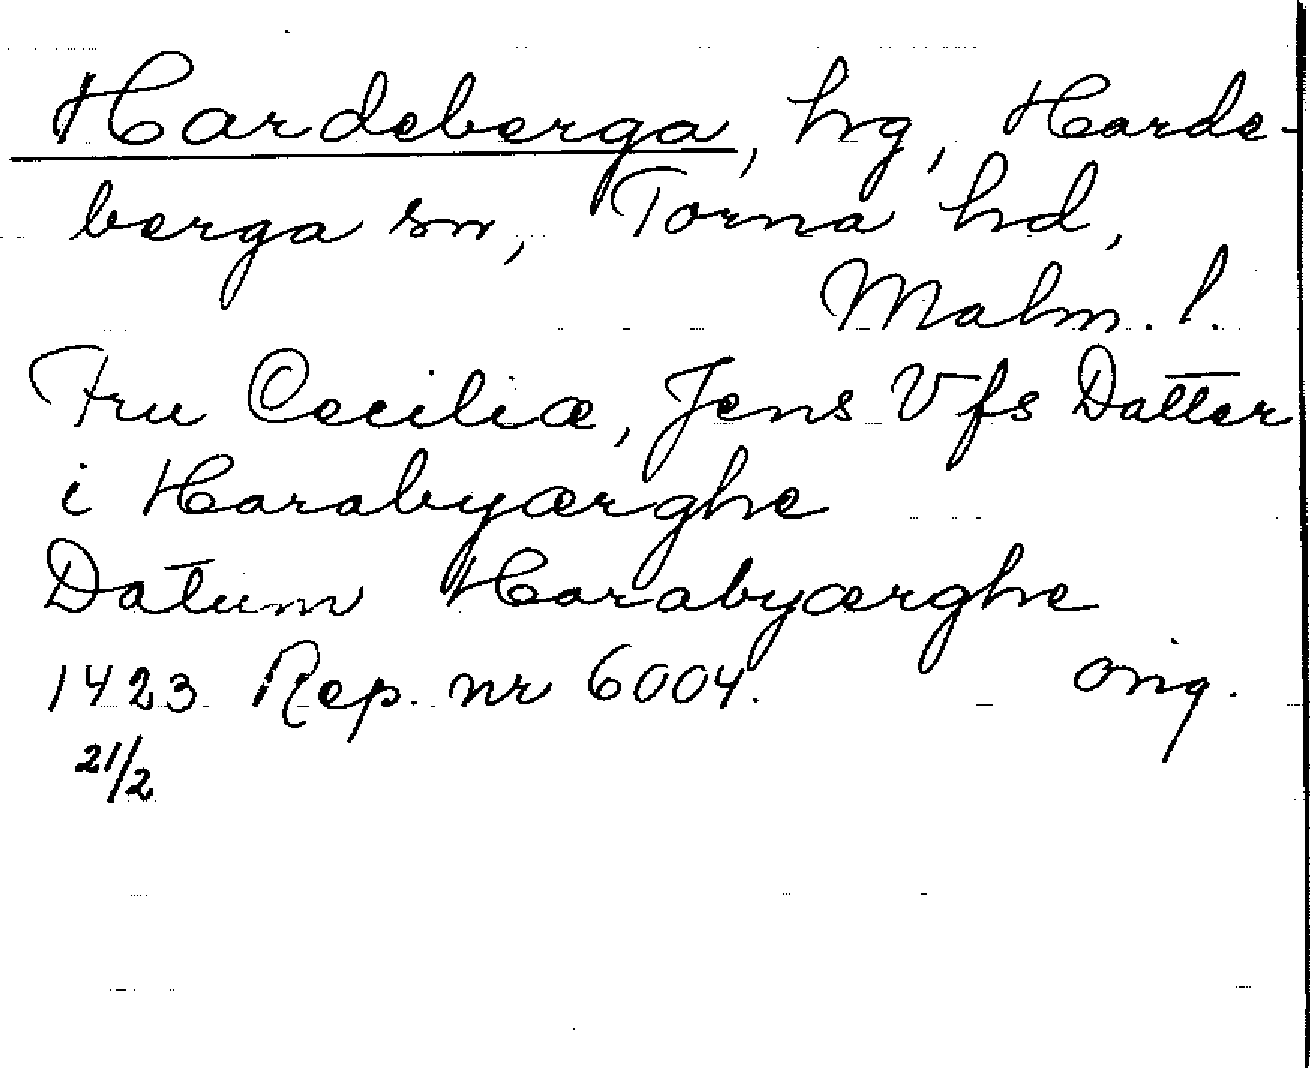 Hardeberga, hg, Harde-
berga sn, Torna hd,
Malm. l.
Fru Ceciliæ, Jens Vfs Datter
i Harabyærghe
Datum Harabyærghe
1423 Rep. nr 6004. orig.
21/2